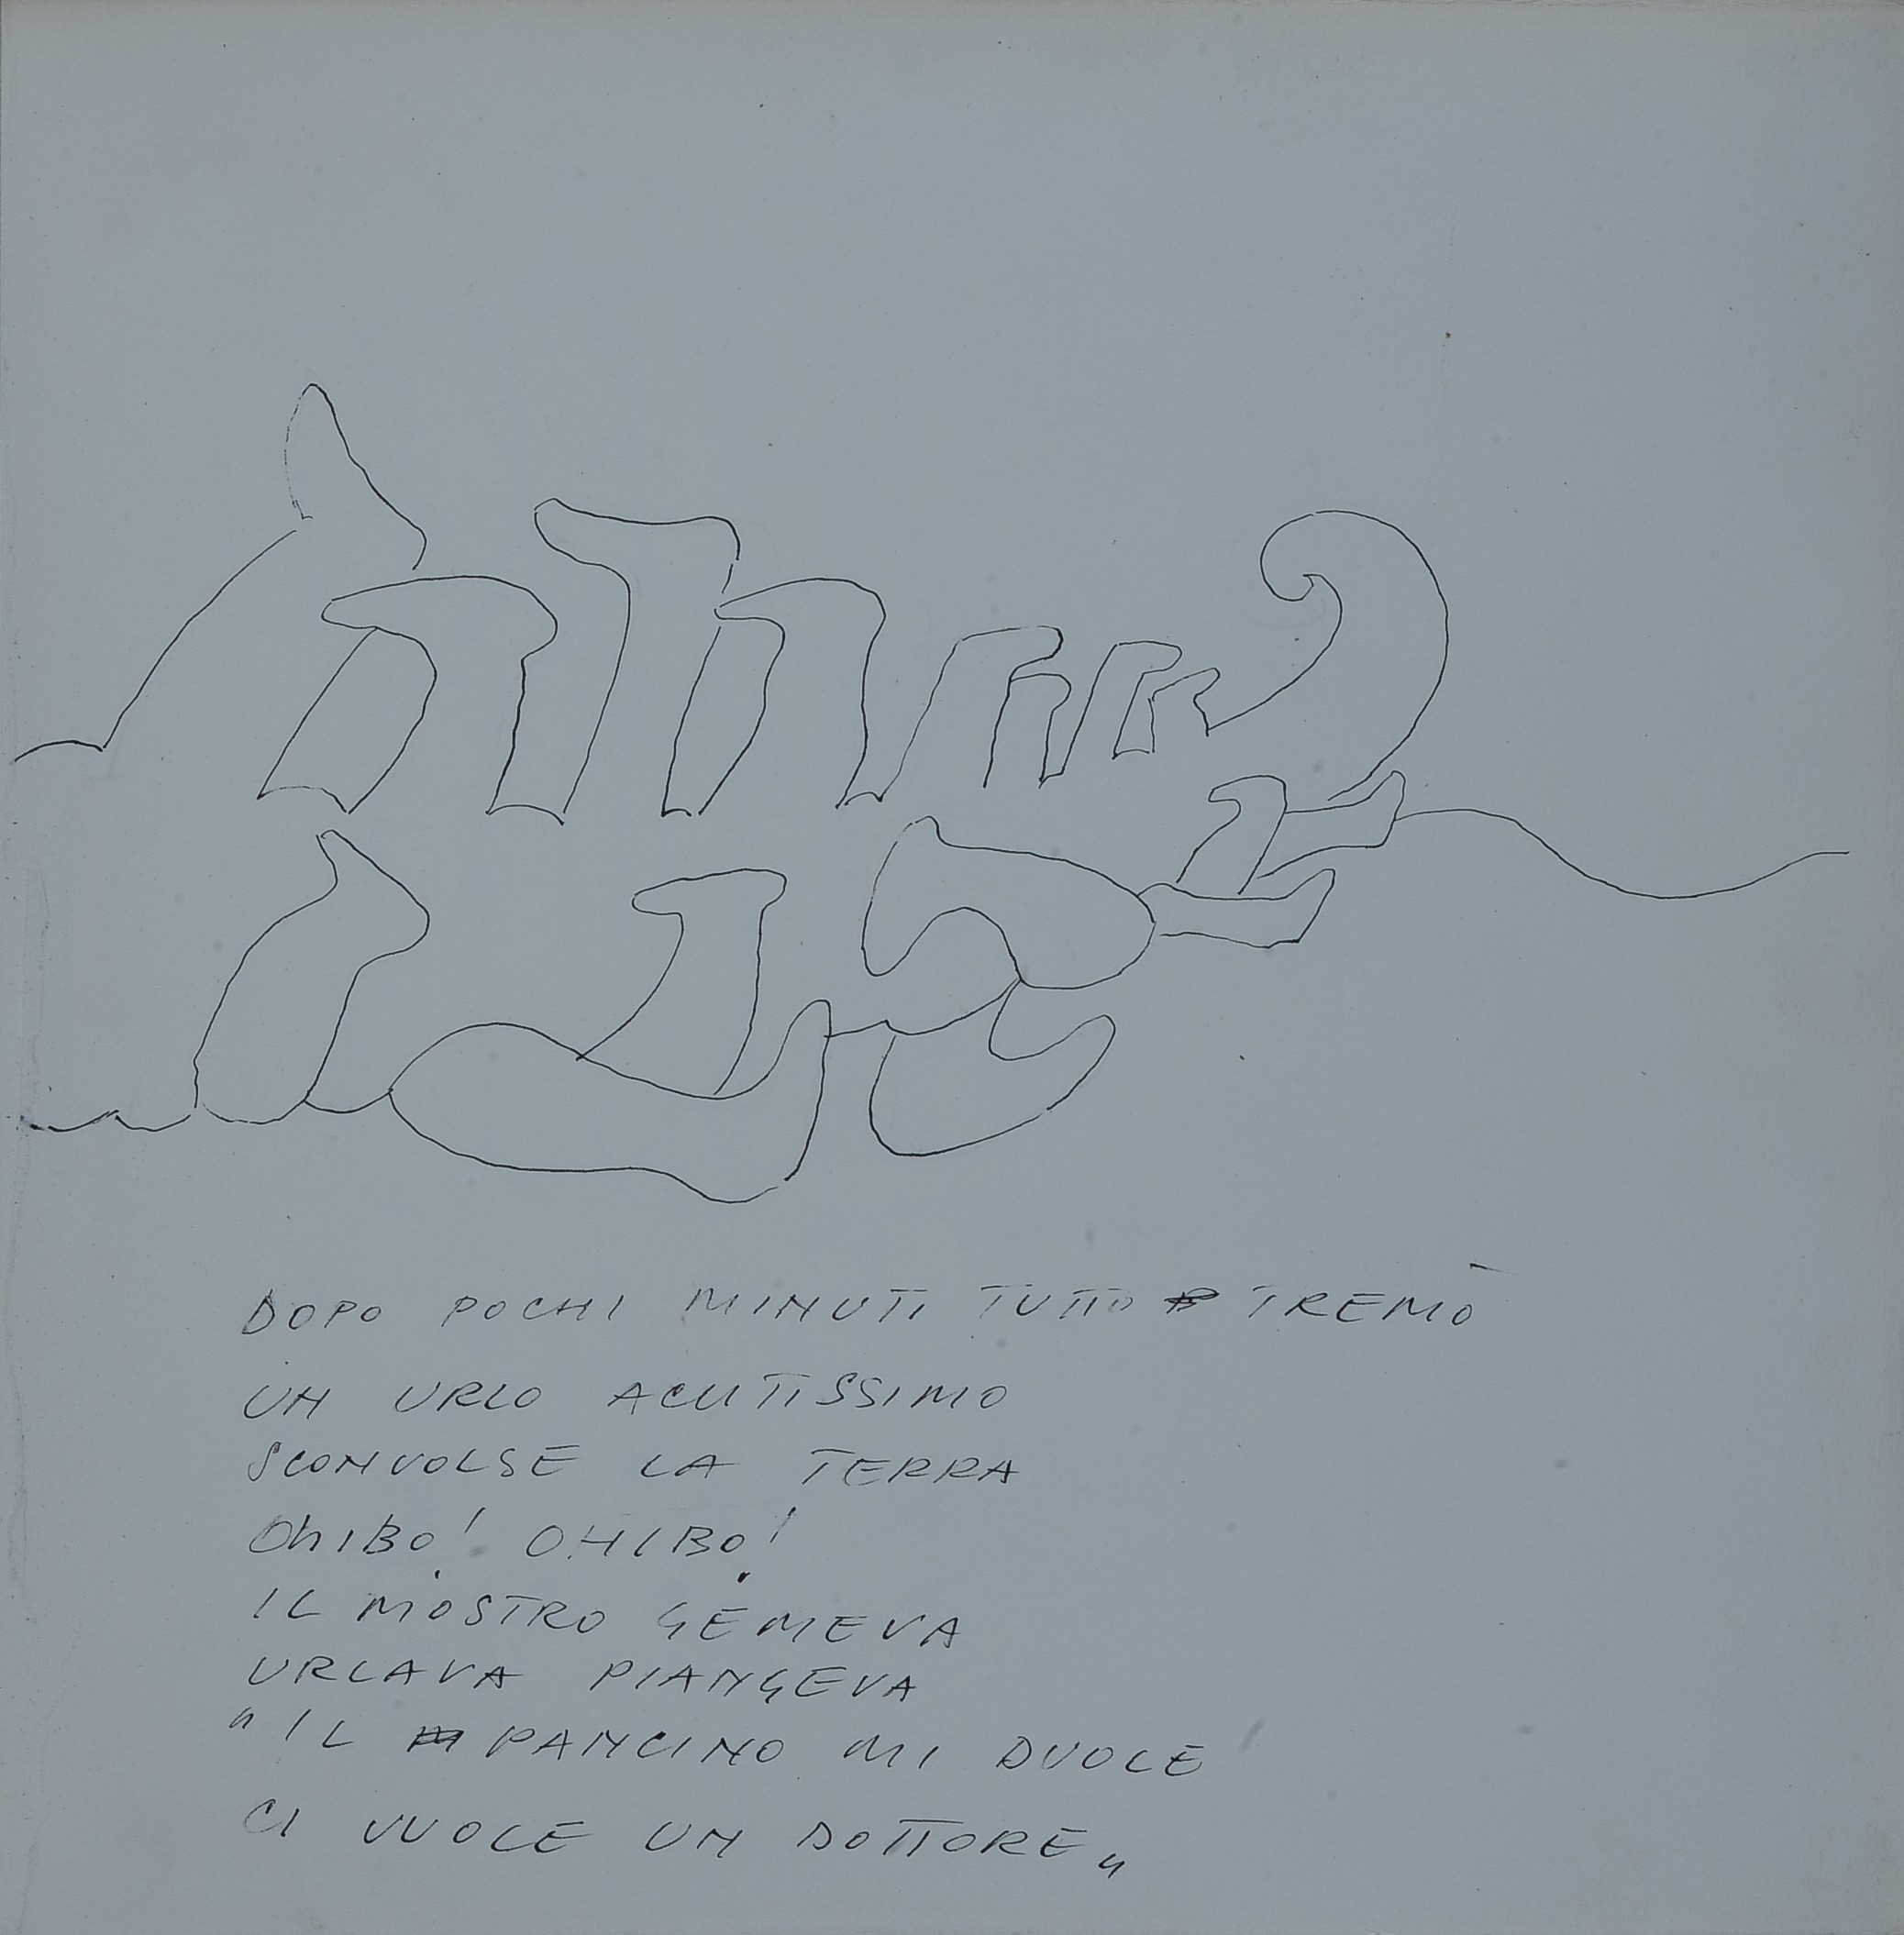 DOPO POCHI MINUTI TUTTO TREMÒ
UN URLO ACUTISSIMO
SCONVOLSE LA TERRA
OhIBO! OHIBO!
IL MOSTRO GEMEVA
URLAVA PIANGEVA
" IL PANCINO MI DUOLE!
CI VUOLE UN DOTTORE "